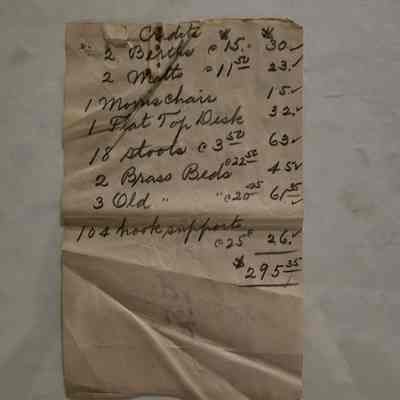 Credits $ $
2 Berths @ 15. 30 ✓
2 Matts @ 11 50 23. ✓
1 Morris chair 15 ✓
1 Flat Top Desk 32. ✓
18 stools @ 3 50 63 ✓
2 Brass Beds @ 22 50 45 ✓
3 Old " " @ 20 45 61 35 ✓
104 hook supports
@ 25c 26. ✓
$ 295 35